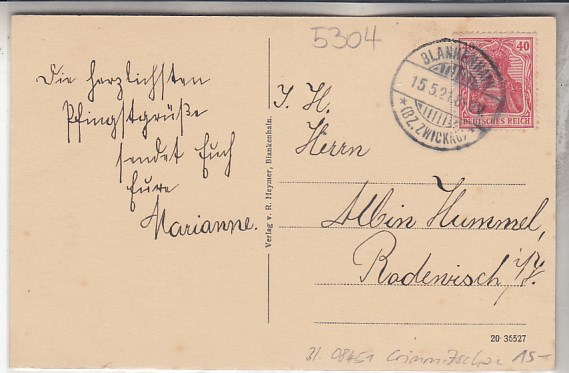 5304
Die herzlichsten
Pfingstgrüße
sendet Euch
Eure
Marianne.
Verlag v. R. Heymer, Blankenhain.
40
DEUTSCHES REICH
BLANKENHAIN
15.5.21
*(BZ. ZWICKAU)*
Herrn
Albin Hummel,
Rodewisch i/V.
20 36527
08451 Crimmitschau 15-